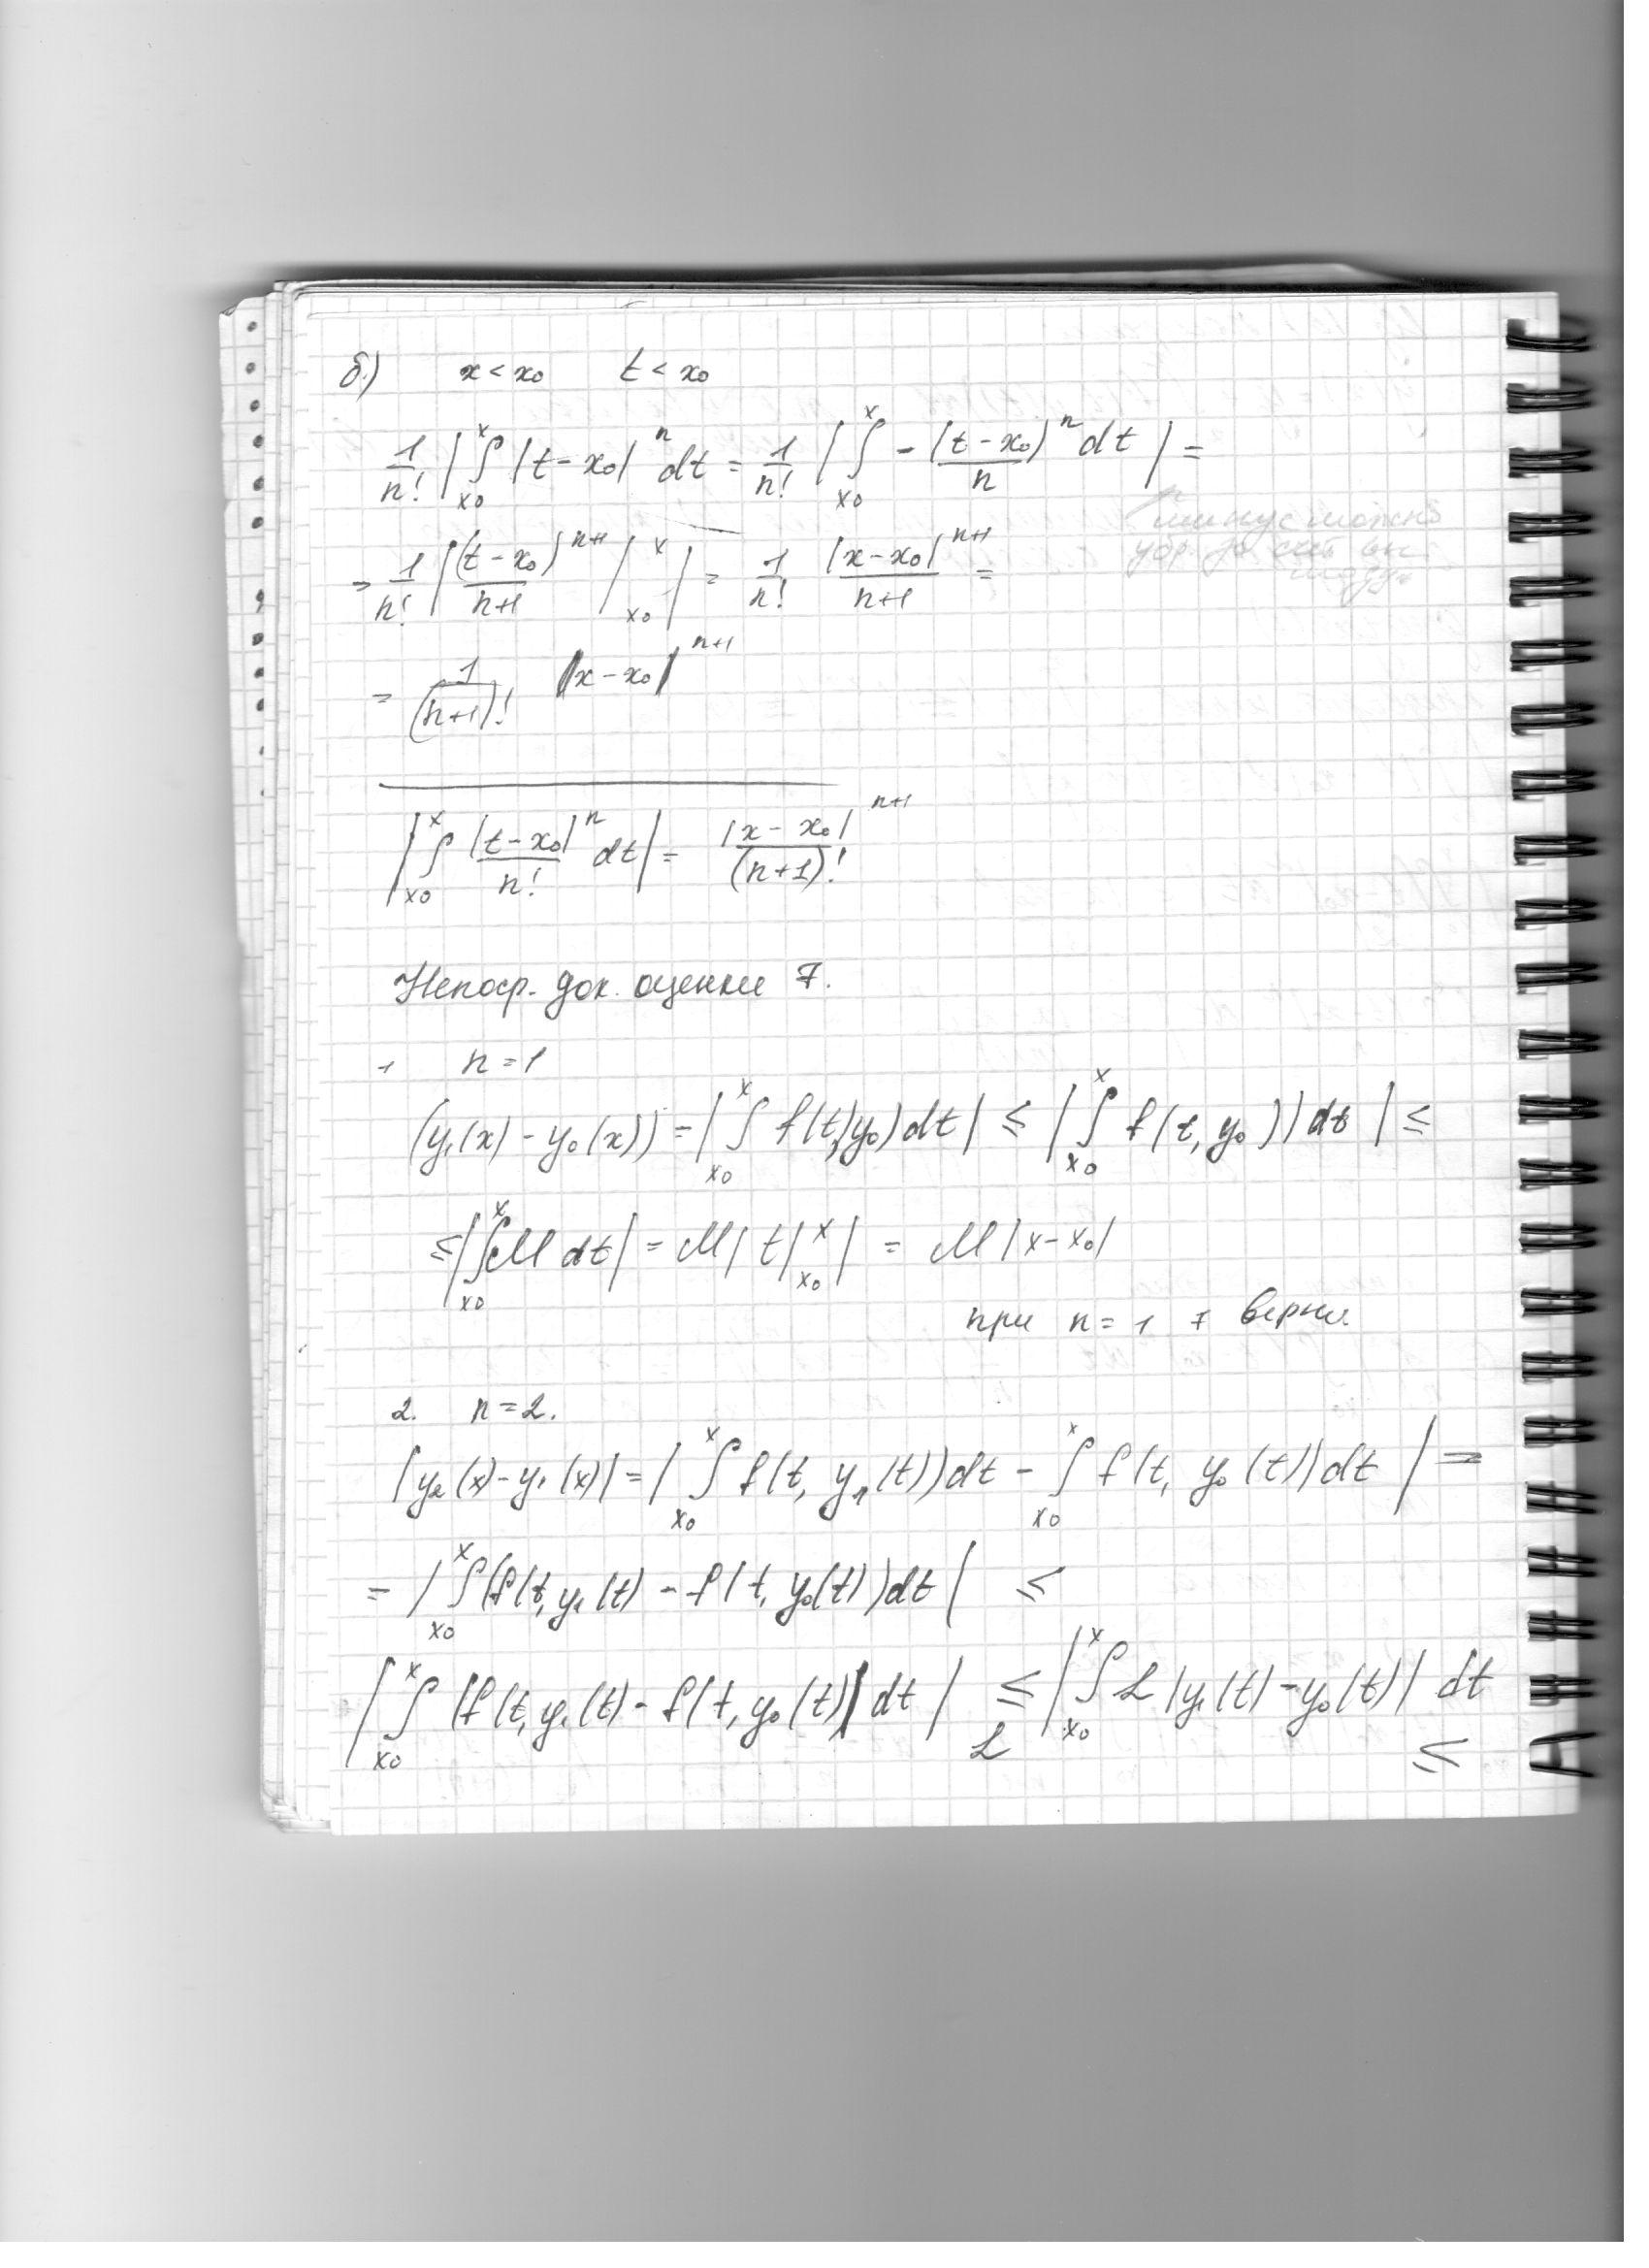 б.) x < x₀ t < x₀
1/n! |∫_{x₀}^{x} |t-x₀|^n dt = 1/n! |∫_{x₀}^{x} -(t-x₀)^n/n dt| =
минус можно
= 1/n! |(t-x₀)^{n+1}/(n+1) |_{x₀}^{x}| = 1/n! |x-x₀|^{n+1}/(n+1) =
= 1/(n+1)! |x-x₀|^{n+1}
|∫_{x₀}^{x} |t-x₀|^n/n! dt| = |x-x₀|^{n+1}/(n+1)!
Непоср. док. оценки 7.
1 n=1
(y₁(x) - y₀(x)) = |∫_{x₀}^{x} f(t,y₀)dt| ≤ |∫_{x₀}^{x} f(t,y₀))dt| ≤
≤ |∫_{x₀}^{x} M dt| = M| t|_{x₀}^{x}| = M|x-x₀|
при n = 1 7 верна
2. n=2.
|y₂(x)-y₁(x)| = |∫_{x₀}^{x} f(t, y₁(t))dt - ∫_{x₀}^{x} f(t, y₀(t))dt| =
= |∫_{x₀}^{x} (f(t,y₁(t) - f(t, y₀(t))dt| ≤
|∫_{x₀}^{x} (f(t,y₁(t) - f(t,y₀(t)|dt| ≤ |∫_{x₀}^{x} L|y₁(t)-y₀(t)| dt
L ≤